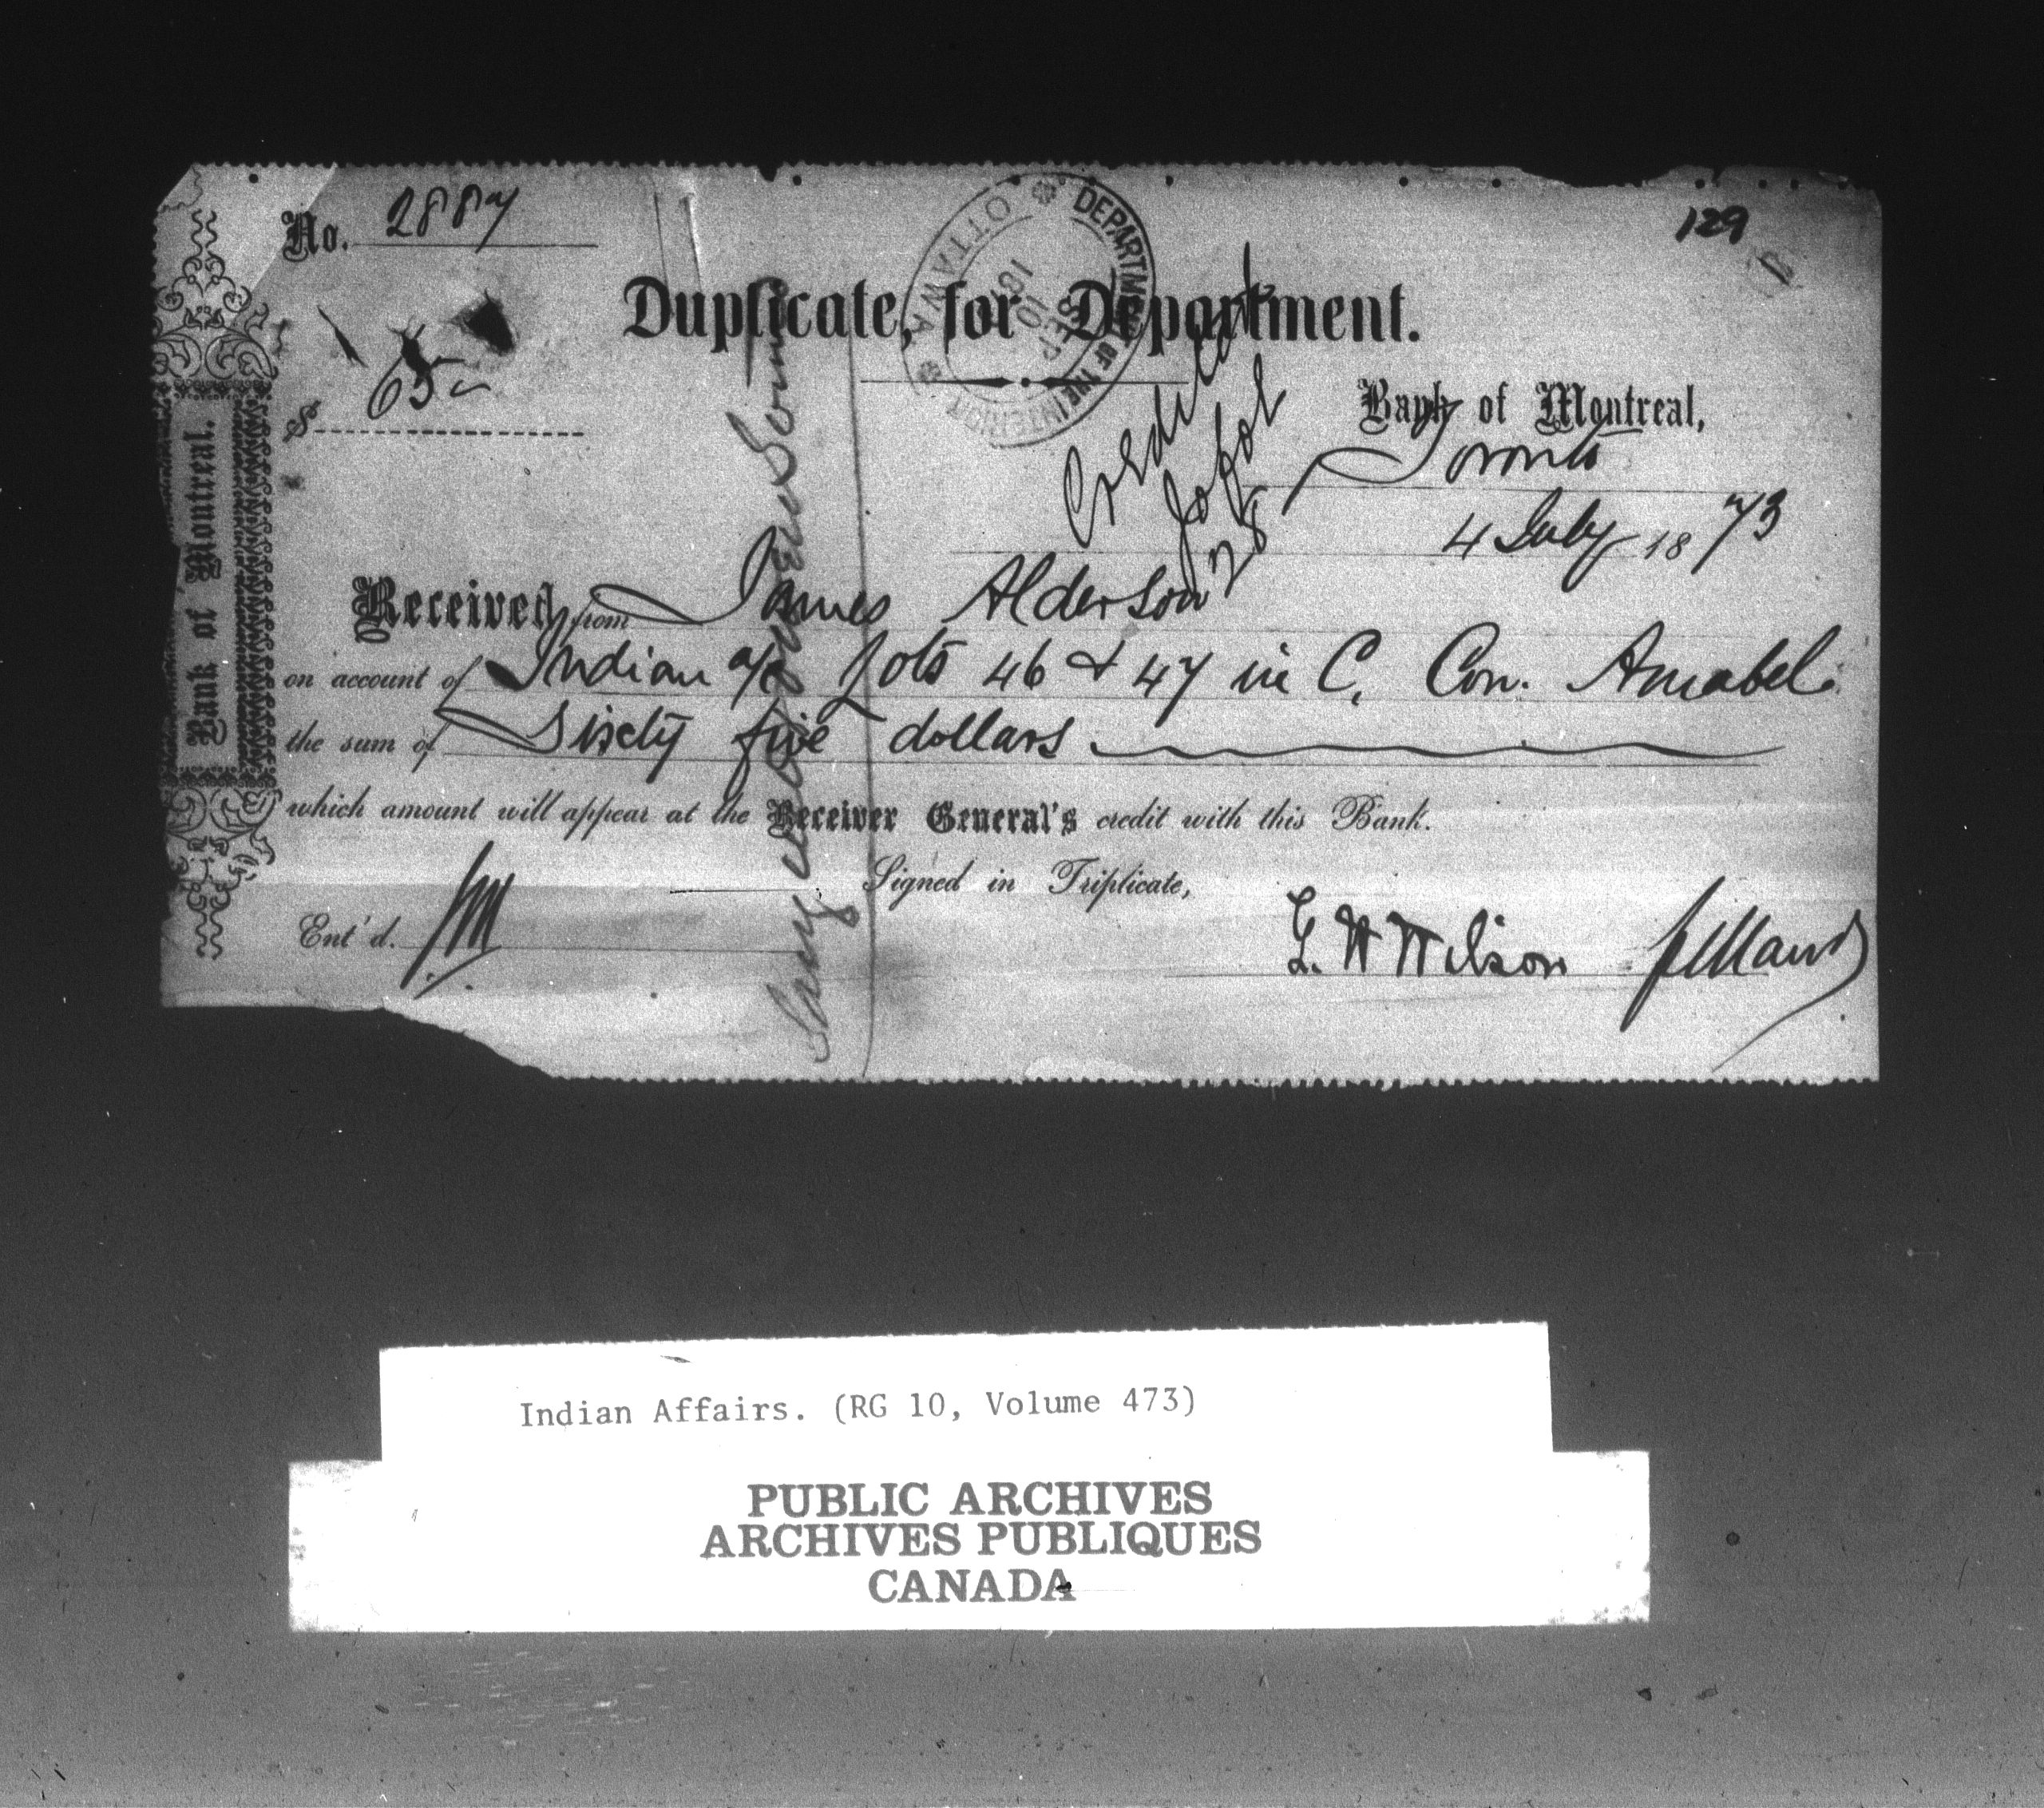 No. 2887
129
DEPARTMENT OF THE INTERIOR
OTTAWA
SEP 10 18
Duplicate, for Department.
$ 65
Bank of Montreal,
Toronto
4 July 1873
Credit
28
Received from James Alderson
on account of Indian a/c Lots 46 & 47 in C. Con. Amabel
the sum of Sixty five dollars
which amount will appear at the Receiver General's credit with this Bank.
Signed in Triplicate,
Ent'd.
G. W Wilson
Bank of Montreal.
Indian Affairs. (RG 10, Volume 473)
PUBLIC ARCHIVES
ARCHIVES PUBLIQUES
CANADA